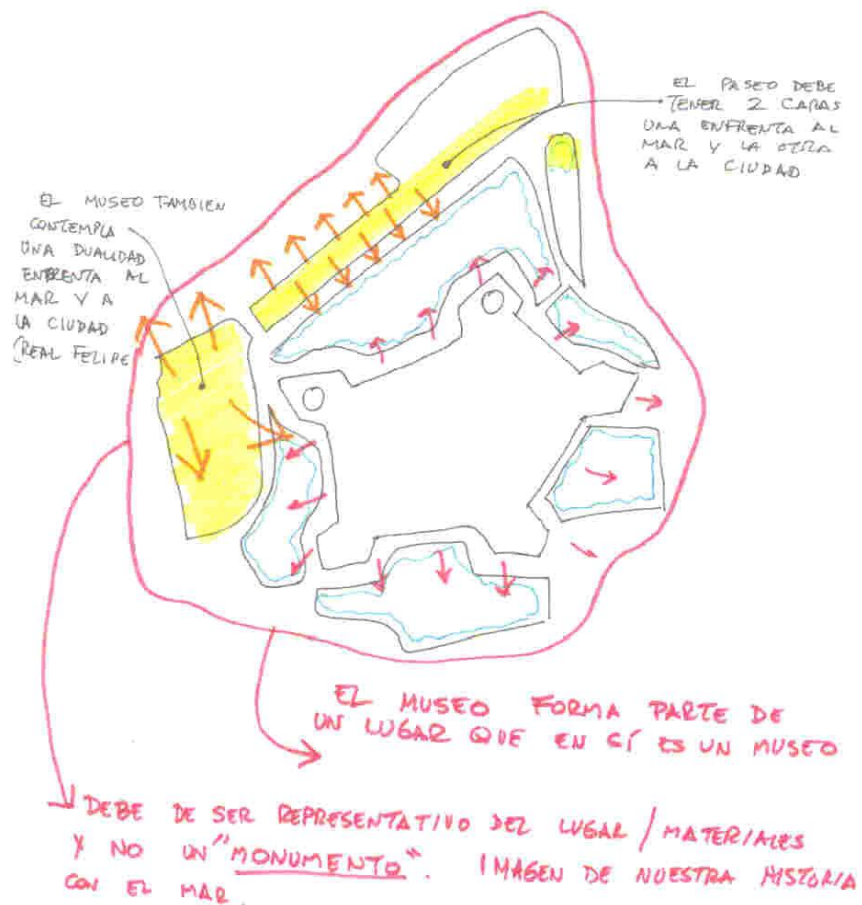 EL PASEO DEBE
TENER 2 CARAS
UNA ENFRENTA AL
MAR Y LA OTRA
A LA CIUDAD
EL MUSEO TAMBIEN
CONTEMPLA
UNA DUALIDAD
ENFRENTA AL
MAR Y A
LA CIUDAD
(REAL FELIPE
EL MUSEO FORMA PARTE DE
UN LUGAR QUE EN SÍ ES UN MUSEO
DEBE DE SER REPRESENTATIVO DEL LUGAR / MATERIALES
Y NO UN "MONUMENTO". IMAGEN DE NUESTRA HISTORIA
CON EL MAR.